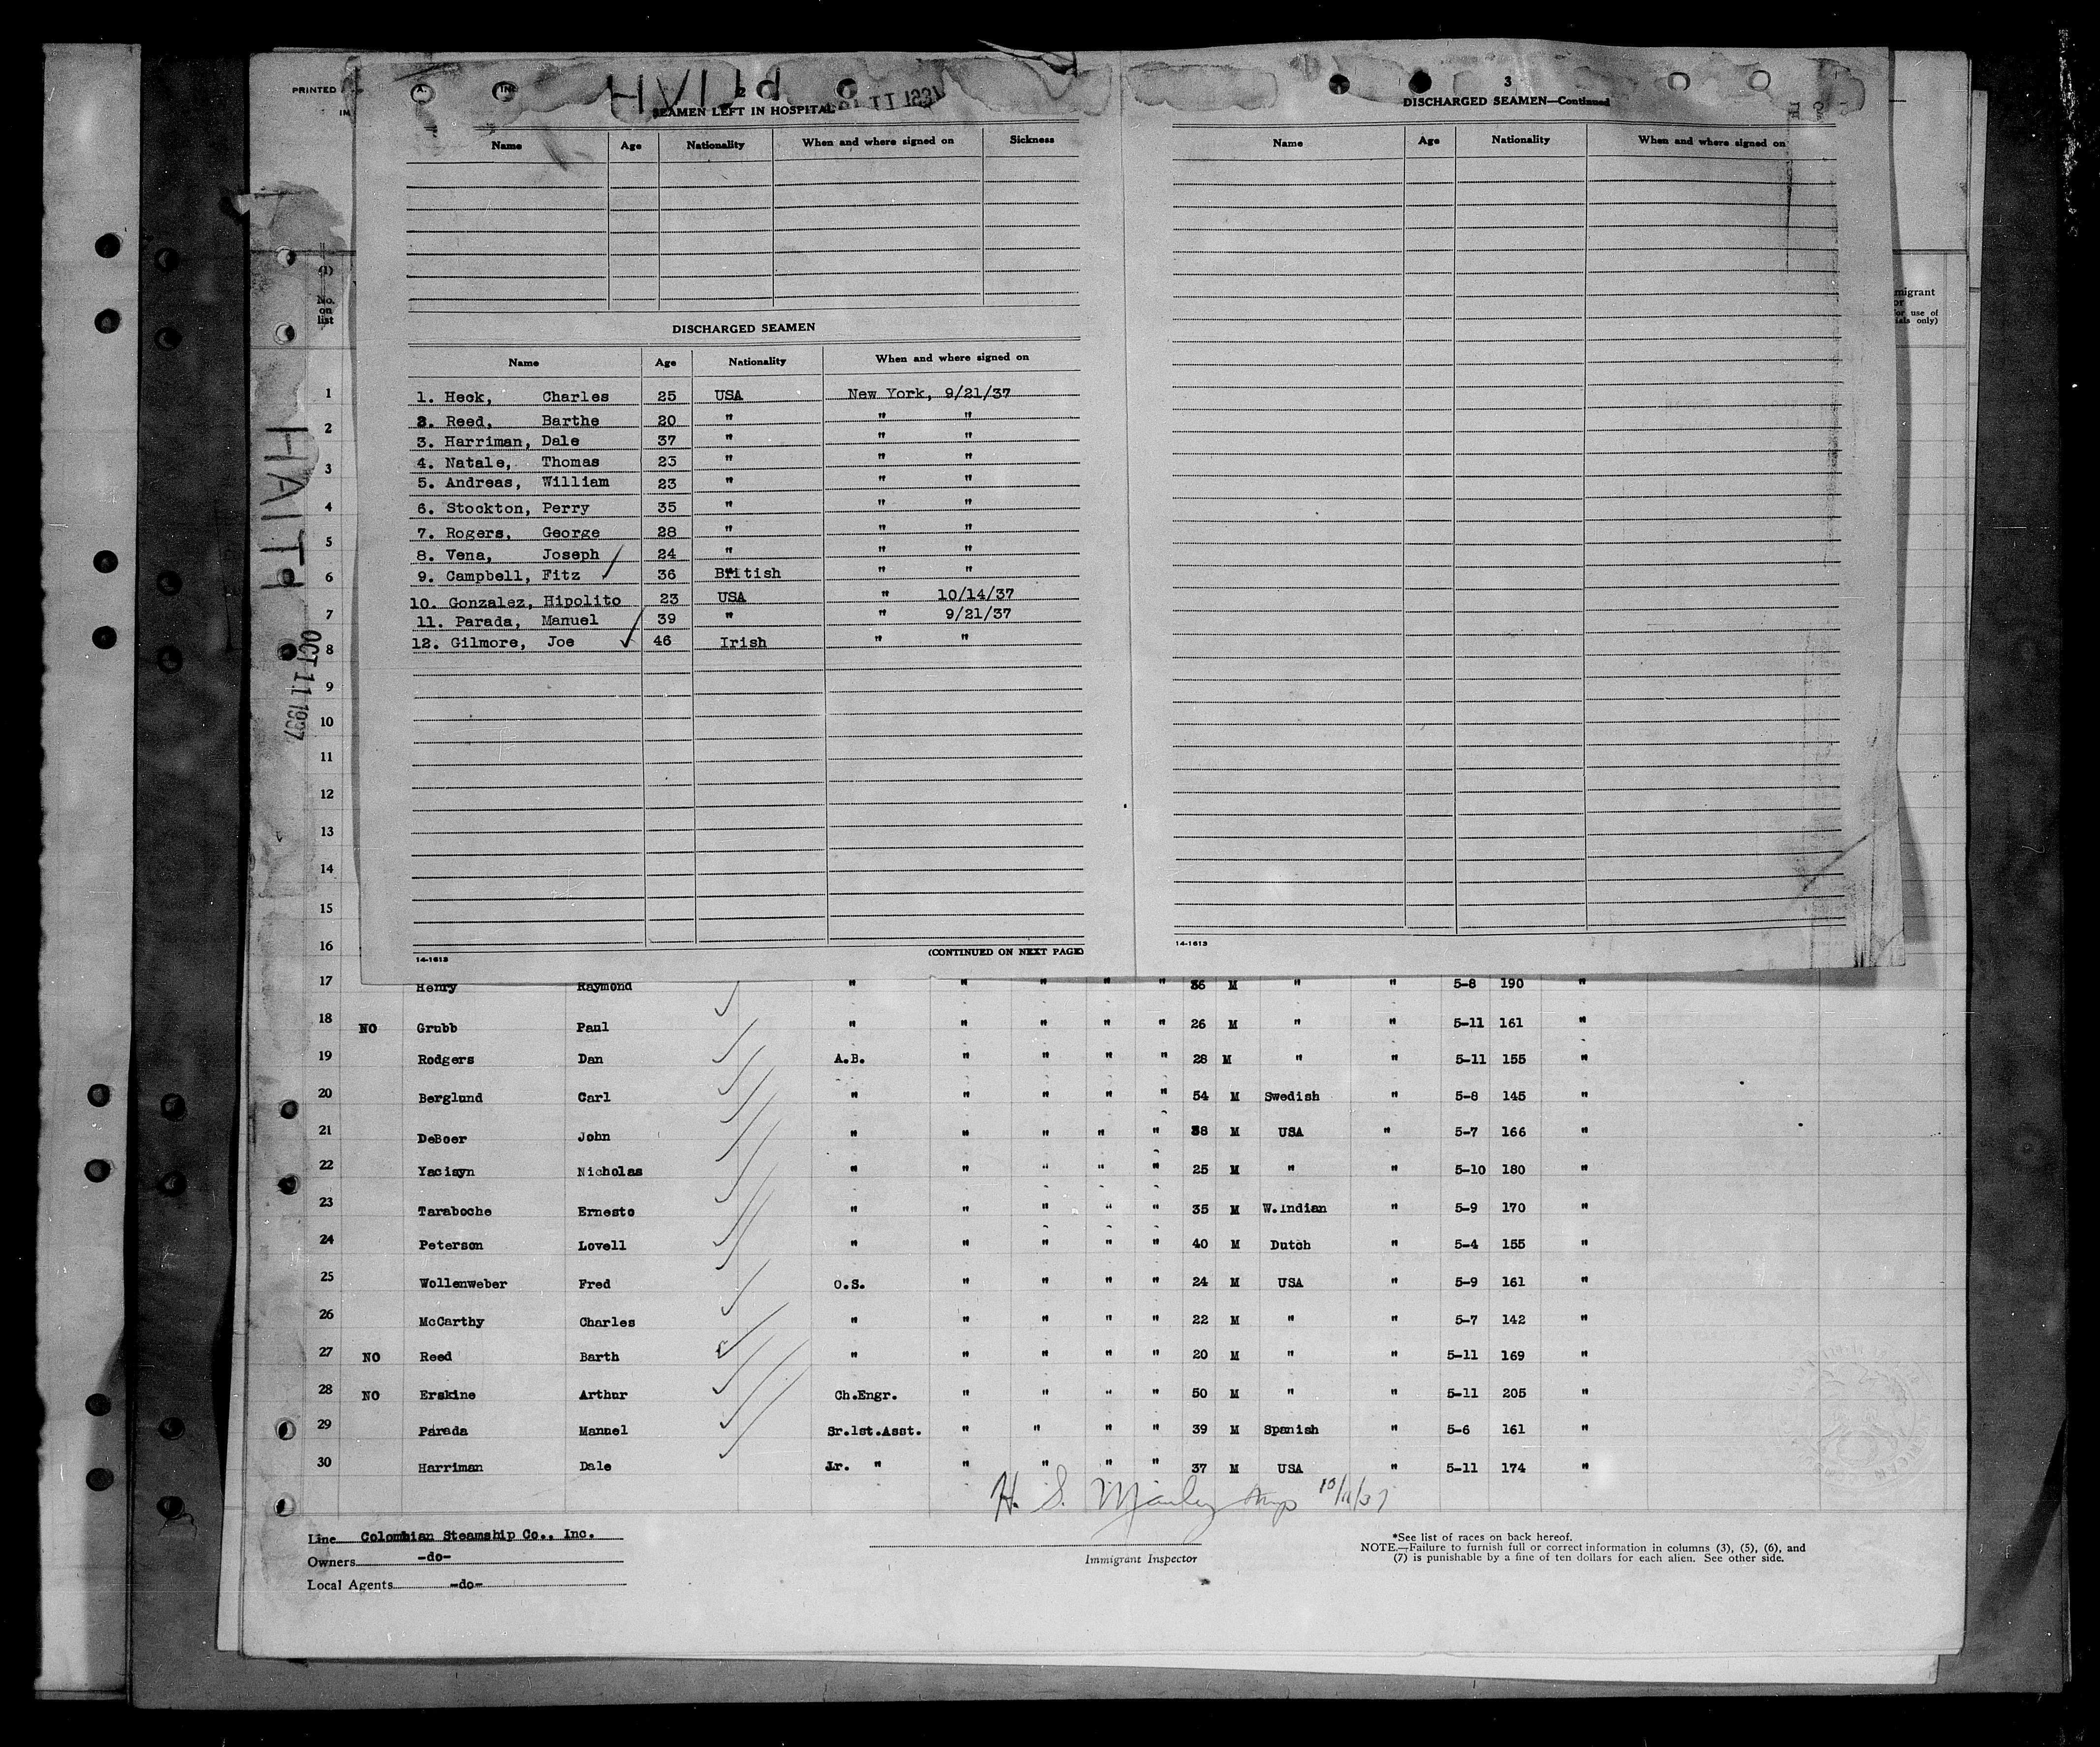 PRINTED
IM
A.
IN
HAITI
OCT 11 1937
(1)
No.
on
list
2
SEAMEN LEFT IN HOSPITAL
Name Age Nationality When and where signed on Sickness
DISCHARGED SEAMEN
Name Age Nationality When and where signed on
1. Heck, Charles 25 USA New York, 9/21/37
2. Reed, Barthe 20 " " "
3. Harriman, Dale 37 " " "
4. Natale, Thomas 23 " " "
5. Andreas, William 23 " " "
6. Stockton, Perry 35 " " "
7. Rogers, George 28 " " "
8. Vena, Joseph 24 " " "
9. Campbell, Fitz 36 British " "
10. Gonzalez, Hipolito 23 USA " 10/14/37
11. Parada, Manuel 39 " " 9/21/37
12. Gilmore, Joe 46 Irish " "
14-1613 (CONTINUED ON NEXT PAGE)
3
DISCHARGED SEAMEN—Continued
Name Age Nationality When and where signed on
14-1613
migrant
or
for use of
ials only)
HAITI
OCT 11 1937
1
2
3
4
5
6
7
8
9
10
11
12
13
14
15
16
17 Henry Raymond " " " " " 36 M " " 5-8 190 "
18 NO Grubb Paul " " " " " 26 M " " 5-11 161 "
19 Rodgers Dan A.B. " " " " 28 M " " 5-11 155 "
20 Berglund Carl " " " " " 54 M Swedish " 5-8 145 "
21 DeBoer John " " " " " 38 M USA " 5-7 166 "
22 Yacisyn Nicholas " " " " " 25 M " " 5-10 180 "
23 Taraboche Ernesto " " " " " 35 M W.Indian " 5-9 170 "
24 Peterson Lovell " " " " " 40 M Dutch " 5-4 155 "
25 Wollenweber Fred O.S. " " " " 24 M USA " 5-9 161 "
26 McCarthy Charles " " " " " 22 M " " 5-7 142 "
27 NO Reed Barth " " " " " 20 M " " 5-11 169 "
28 NO Erskine Arthur Ch.Engr. " " " " 50 M " " 5-11 205 "
29 Parada Manuel Sr.1st.Asst. " " " " 39 M Spanish " 5-6 161 "
30 Harriman Dale Jr. " " " " " 37 M USA " 5-11 174 "
H. S. Manley 10/11/37
Immigrant Inspector
Line Colombian Steamship Co., Inc.
Owners -do-
Local Agents -do-
*See list of races on back hereof.
NOTE.—Failure to furnish full or correct information in columns (3), (5), (6), and
(7) is punishable by a fine of ten dollars for each alien. See other side.